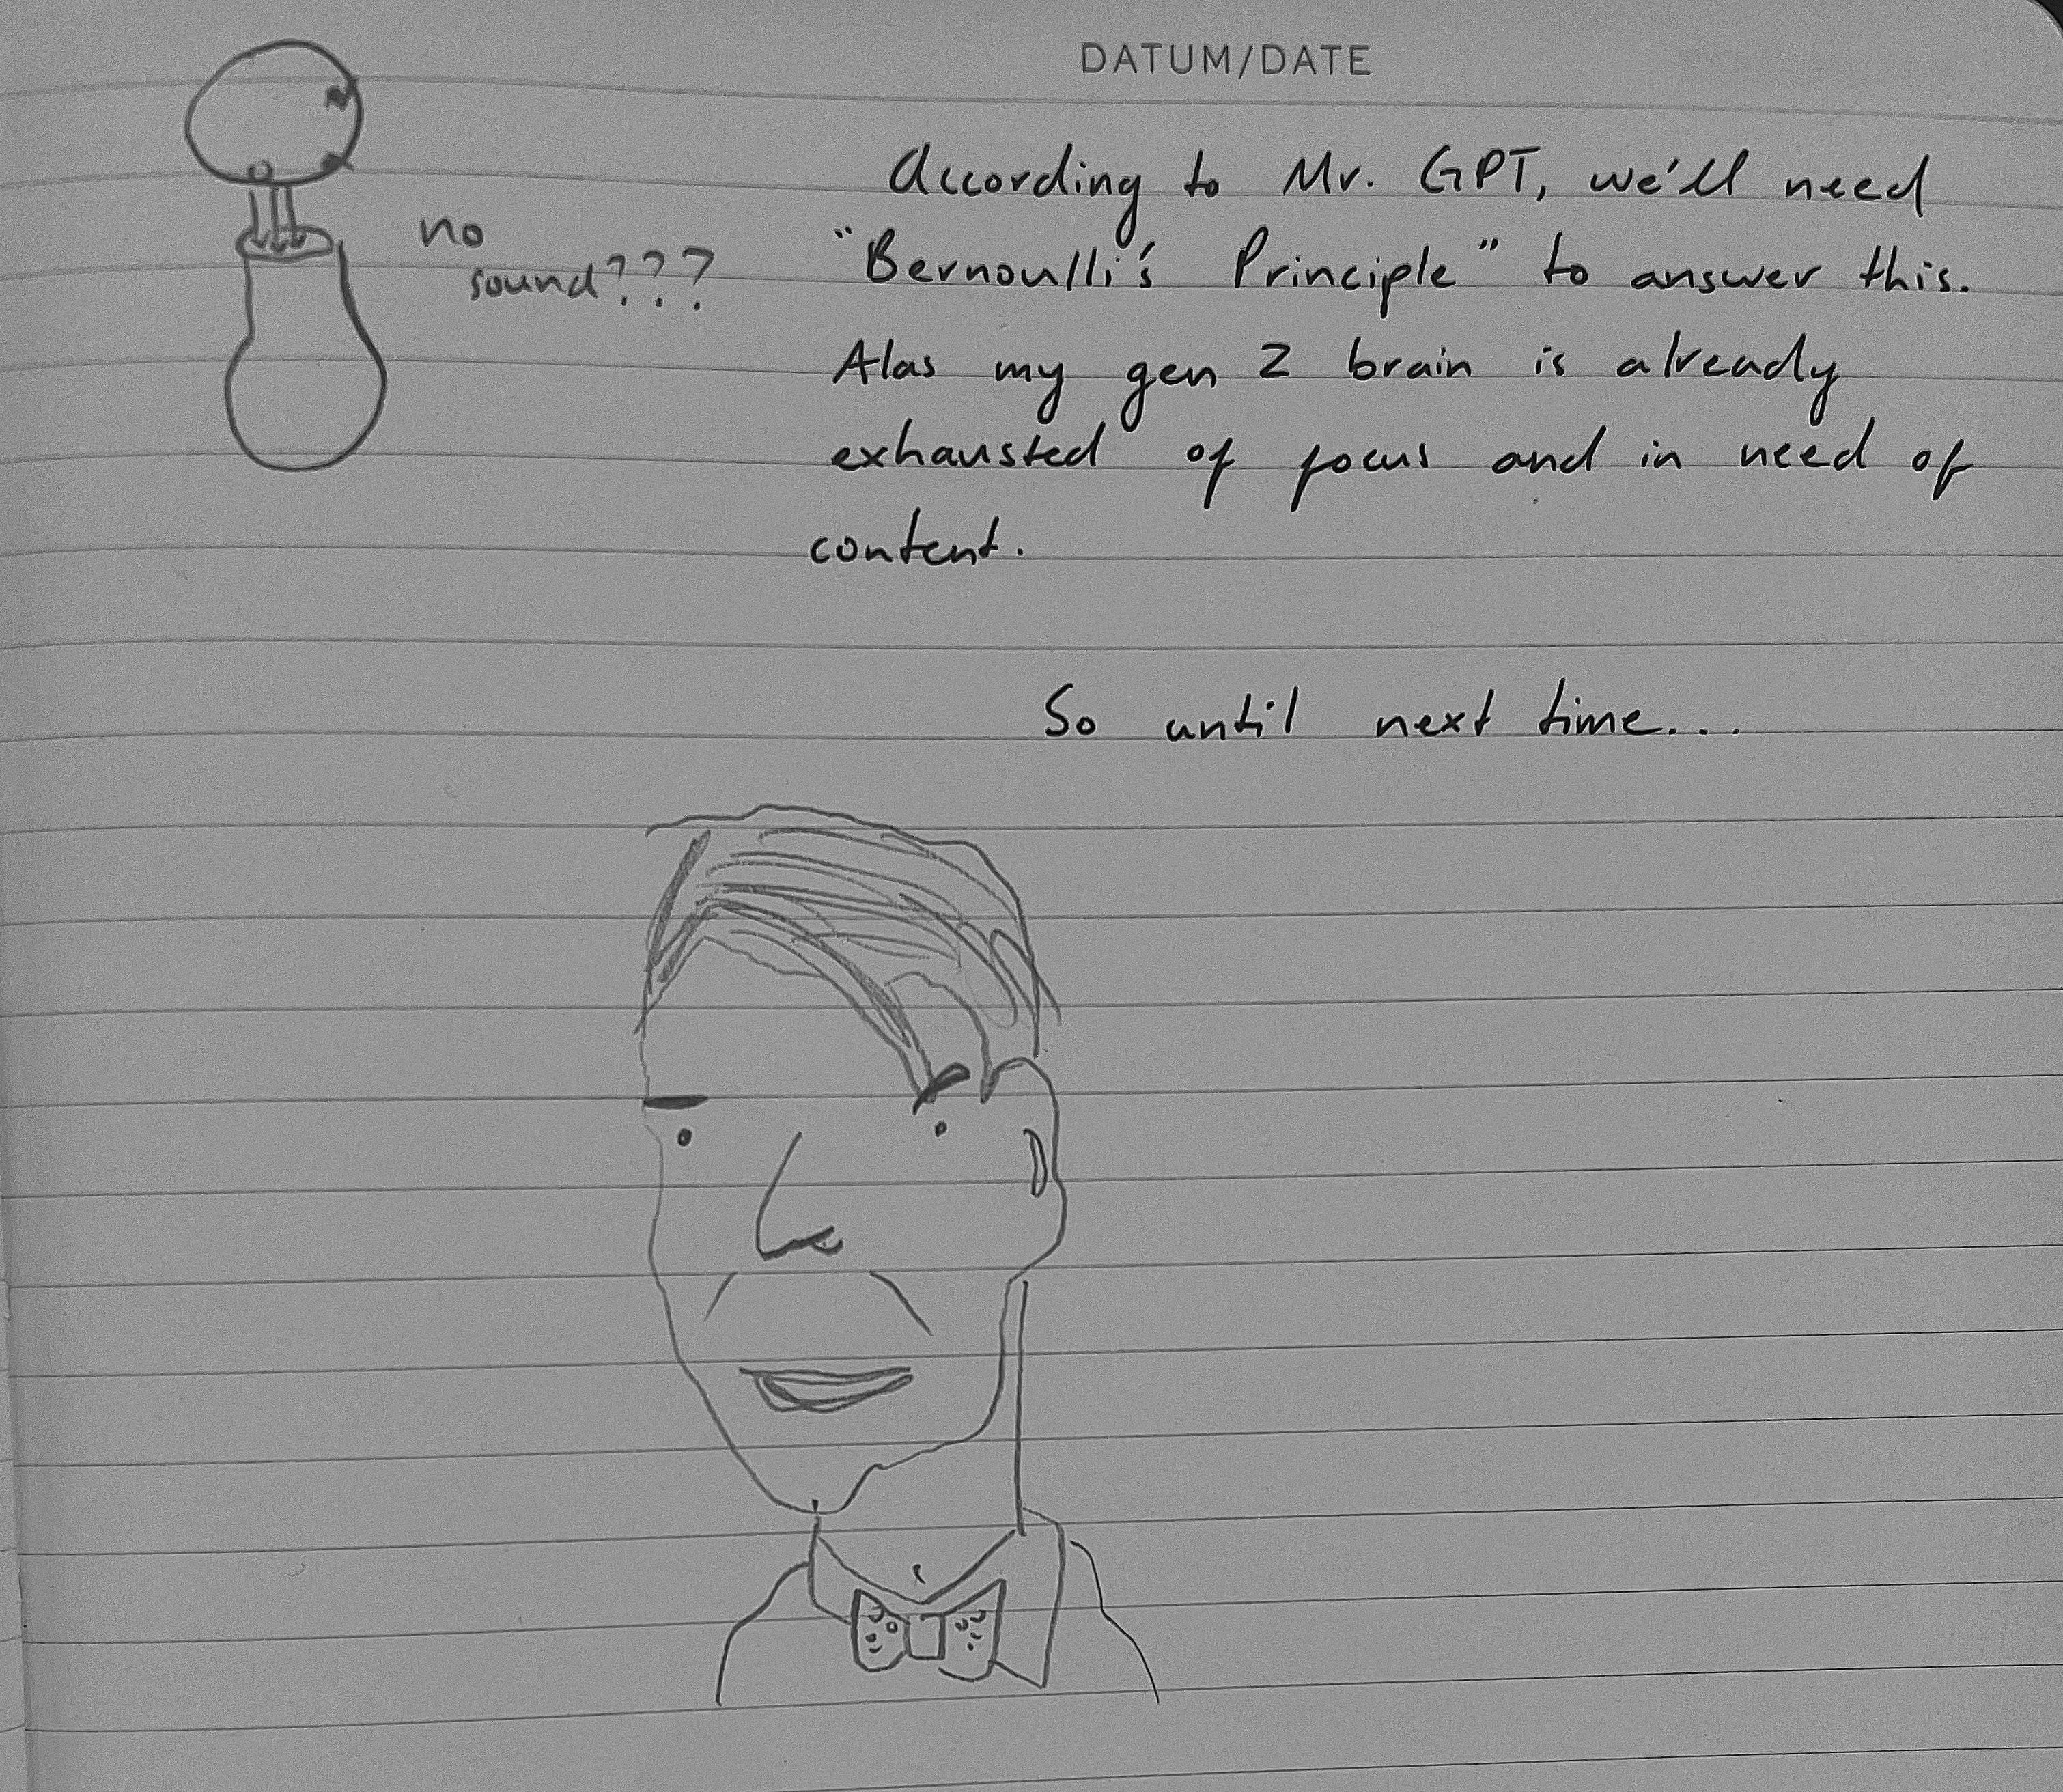 DATUM/DATE
no
sound???
According to Mr. GPT, we'll need
"Bernoulli's Principle" to answer this.
Alas my gen Z brain is already
exhausted of focus and in need of
content.
So until next time...